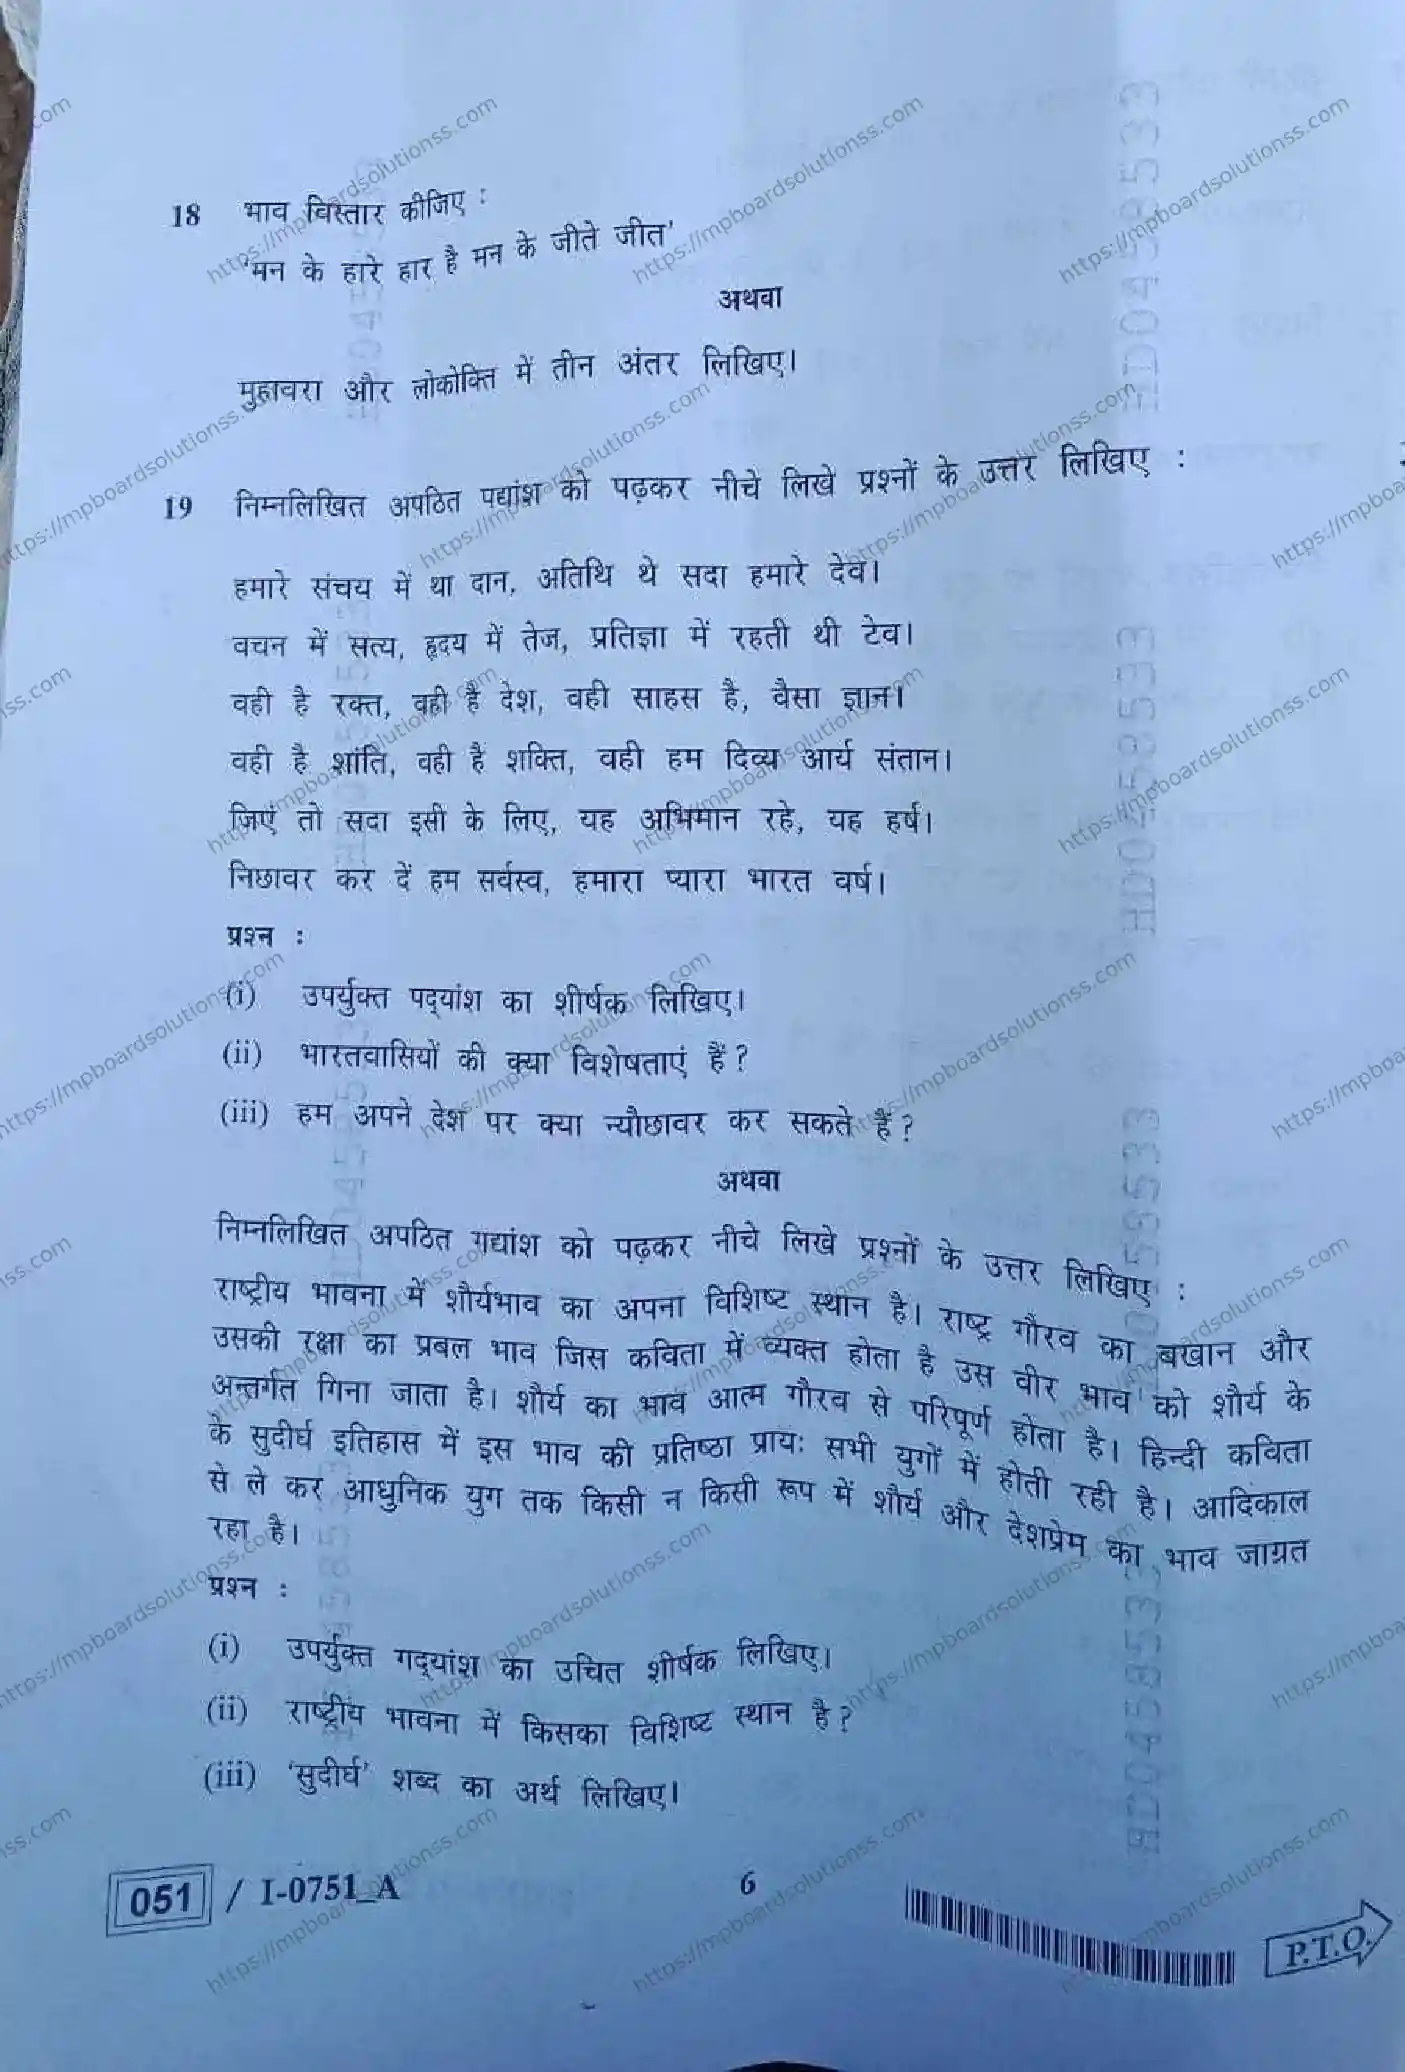 18 भाव विस्तार कीजिए :
'मन के हारे हार है मन के जीते जीत'
अथवा
मुहावरा और लोकोक्ति में तीन अंतर लिखिए।
19 निम्नलिखित अपठित पद्यांश को पढ़कर नीचे लिखे प्रश्नों के उत्तर लिखिए :
हमारे संचय में था दान, अतिथि थे सदा हमारे देव।
वचन में सत्य, हृदय में तेज, प्रतिज्ञा में रहती थी टेव।
वही है रक्त, वही है देश, वही साहस है, वैसा ज्ञान।
वही है शांति, वही है शक्ति, वही हम दिव्य आर्य संतान।
जिएं तो सदा इसी के लिए, यह अभिमान रहे, यह हर्ष।
निछावर कर दें हम सर्वस्व, हमारा प्यारा भारत वर्ष।
प्रश्न :
(i) उपर्युक्त पद्यांश का शीर्षक लिखिए।
(ii) भारतवासियों की क्या विशेषताएं हैं?
(iii) हम अपने देश पर क्या न्यौछावर कर सकते हैं?
अथवा
निम्नलिखित अपठित गद्यांश को पढ़कर नीचे लिखे प्रश्नों के उत्तर लिखिए :
राष्ट्रीय भावना में शौर्यभाव का अपना विशिष्ट स्थान है। राष्ट्र गौरव का बखान और
उसकी रक्षा का प्रबल भाव जिस कविता में व्यक्त होता है उस वीर भाव को शौर्य के
अन्तर्गत गिना जाता है। शौर्य का भाव आत्म गौरव से परिपूर्ण होता है। हिन्दी कविता
के सुदीर्घ इतिहास में इस भाव की प्रतिष्ठा प्रायः सभी युगों में होती रही है। आदिकाल
से ले कर आधुनिक युग तक किसी न किसी रूप में शौर्य और देशप्रेम का भाव जाग्रत
रहा है।
प्रश्न :
(i) उपर्युक्त गद्यांश का उचित शीर्षक लिखिए।
(ii) राष्ट्रीय भावना में किसका विशिष्ट स्थान है?
(iii) 'सुदीर्घ' शब्द का अर्थ लिखिए।
051 / I-0751_A 6 P.T.O.
https://mpboardsolutionss.com